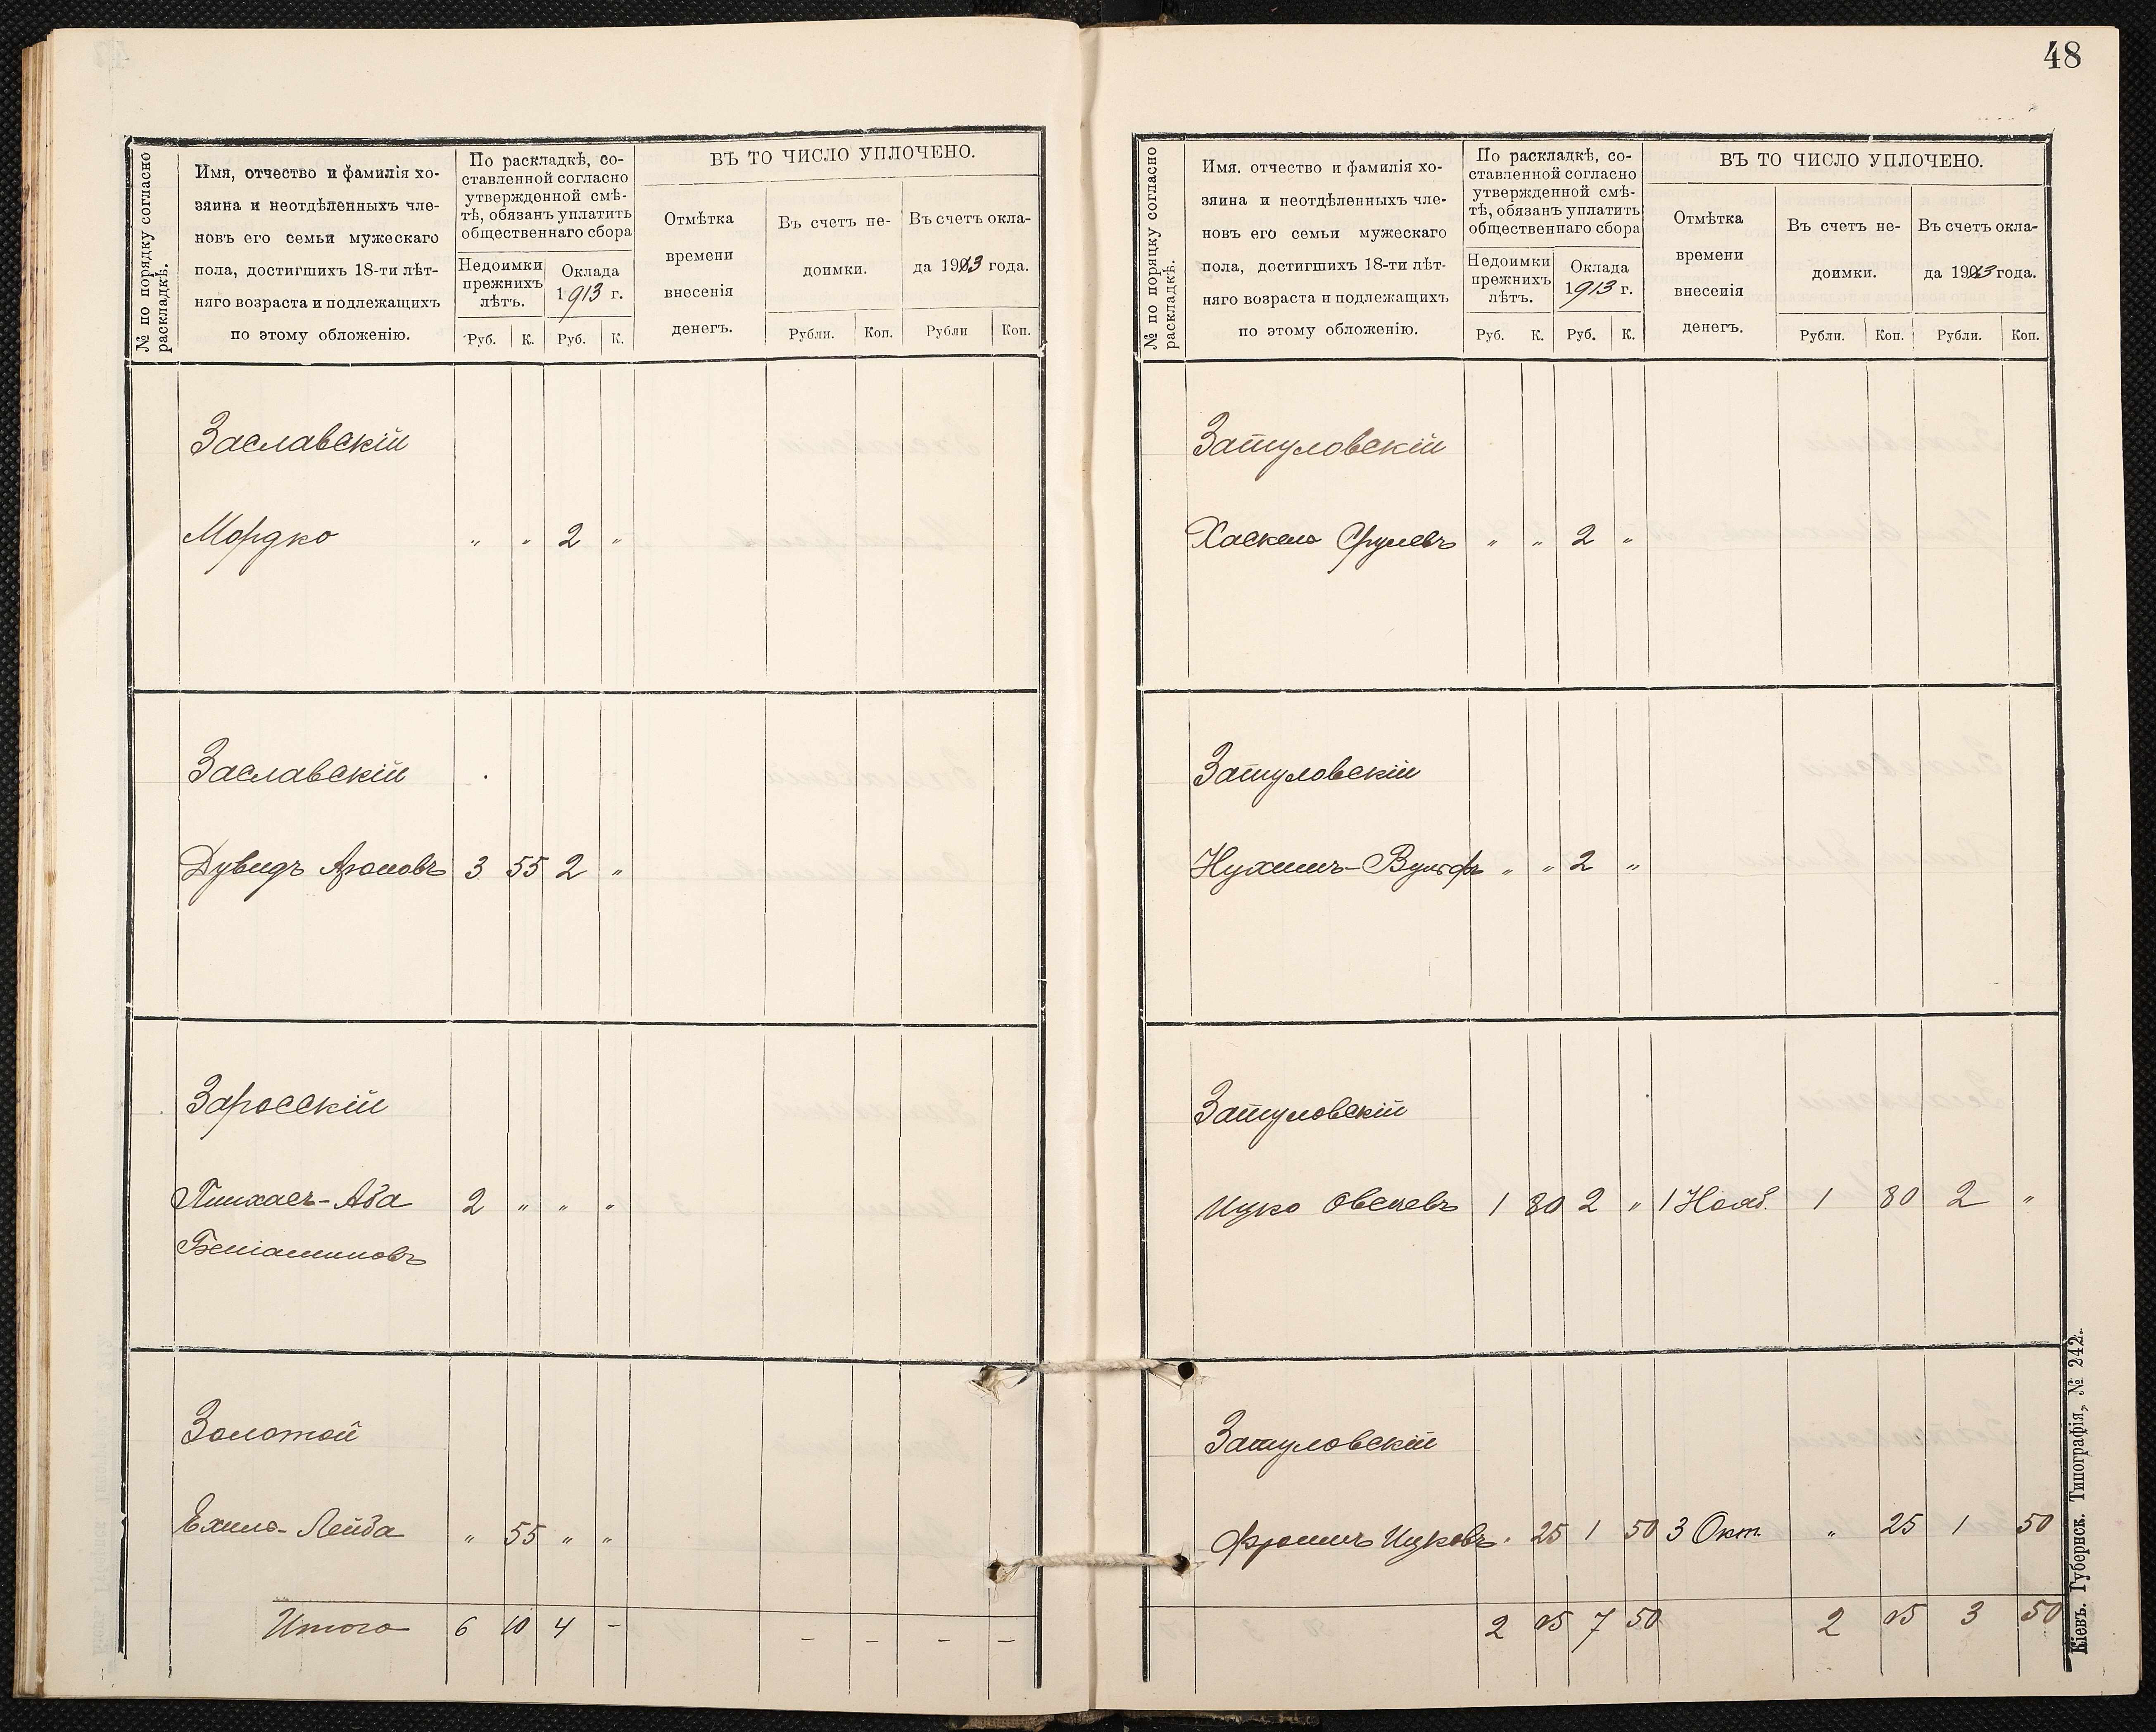 48
№ по порядку согласно раскладкѣ.
Имя, отчество и фамилія хо-
зяина и неотдѣленныхъ чле-
новъ его семьи мужескаго
пола, достигшихъ 18-ти лѣт-
няго возраста и подлежащихъ
по этому обложенію.
По раскладкѣ, со-
ставленной согласно
утвержденной смѣ-
тѣ, обязанъ уплатить
общественнаго сбора
Недоимки
прежнихъ
лѣтъ.
Оклада
1913 г.
Руб. К. Руб. К.
ВЪ ТО ЧИСЛО УПЛОЧЕНО.
Отмѣтка
времени
внесенія
денегъ.
Въ счетъ не-
доимки.
Въ счетъ окла-
да 1913 года.
Рубли. Коп. Рубли Коп.
Заславскій
Мордко " " 2 "
Заславскій
Дувидъ Ароновъ 3 55 2 "
Заросскій
Пинхасъ-Аба 2 " " "
Беніаминовъ
Золотой
Ехиль-Лейба " 55 " "
Итого 6 10 4 - - - - -
№ по порядку согласно раскладкѣ.
Имя. отчество и фамилія хо-
зяина и неотдѣленныхъ чле-
новъ его семьи мужескаго
пола, достигшихъ 18-ти лѣт-
няго возраста и подлежащихъ
по этому обложенію.
По раскладкѣ, со-
ставленной согласно
утвержденной смѣ-
тѣ, обязанъ уплатить
общественнаго сбора
Недоимки
прежнихъ
лѣтъ.
Оклада
1913 г.
Руб. К. Руб. К.
ВЪ ТО ЧИСЛО УПЛОЧЕНО.
Отмѣтка
времени
внесенія
денегъ.
Въ счетъ не-
доимки.
Въ счетъ окла-
да 1913 года.
Рубли. Коп. Рубли. Коп.
Затуловскій
Хаскель Срулевъ " " 2 "
Затуловскій
Нухимъ-Вульфъ " " 2 "
Затуловскій
Ицко Овсеевъ 1 80 2 " 1 Нояб. 1 80 2 "
Затуловскій
Фроимъ Ицковъ " 25 1 50 3 Окт. " 25 1 50
2 05 7 50 2 05 3 50
Кіевъ. Губернск. Типографія, № 242.